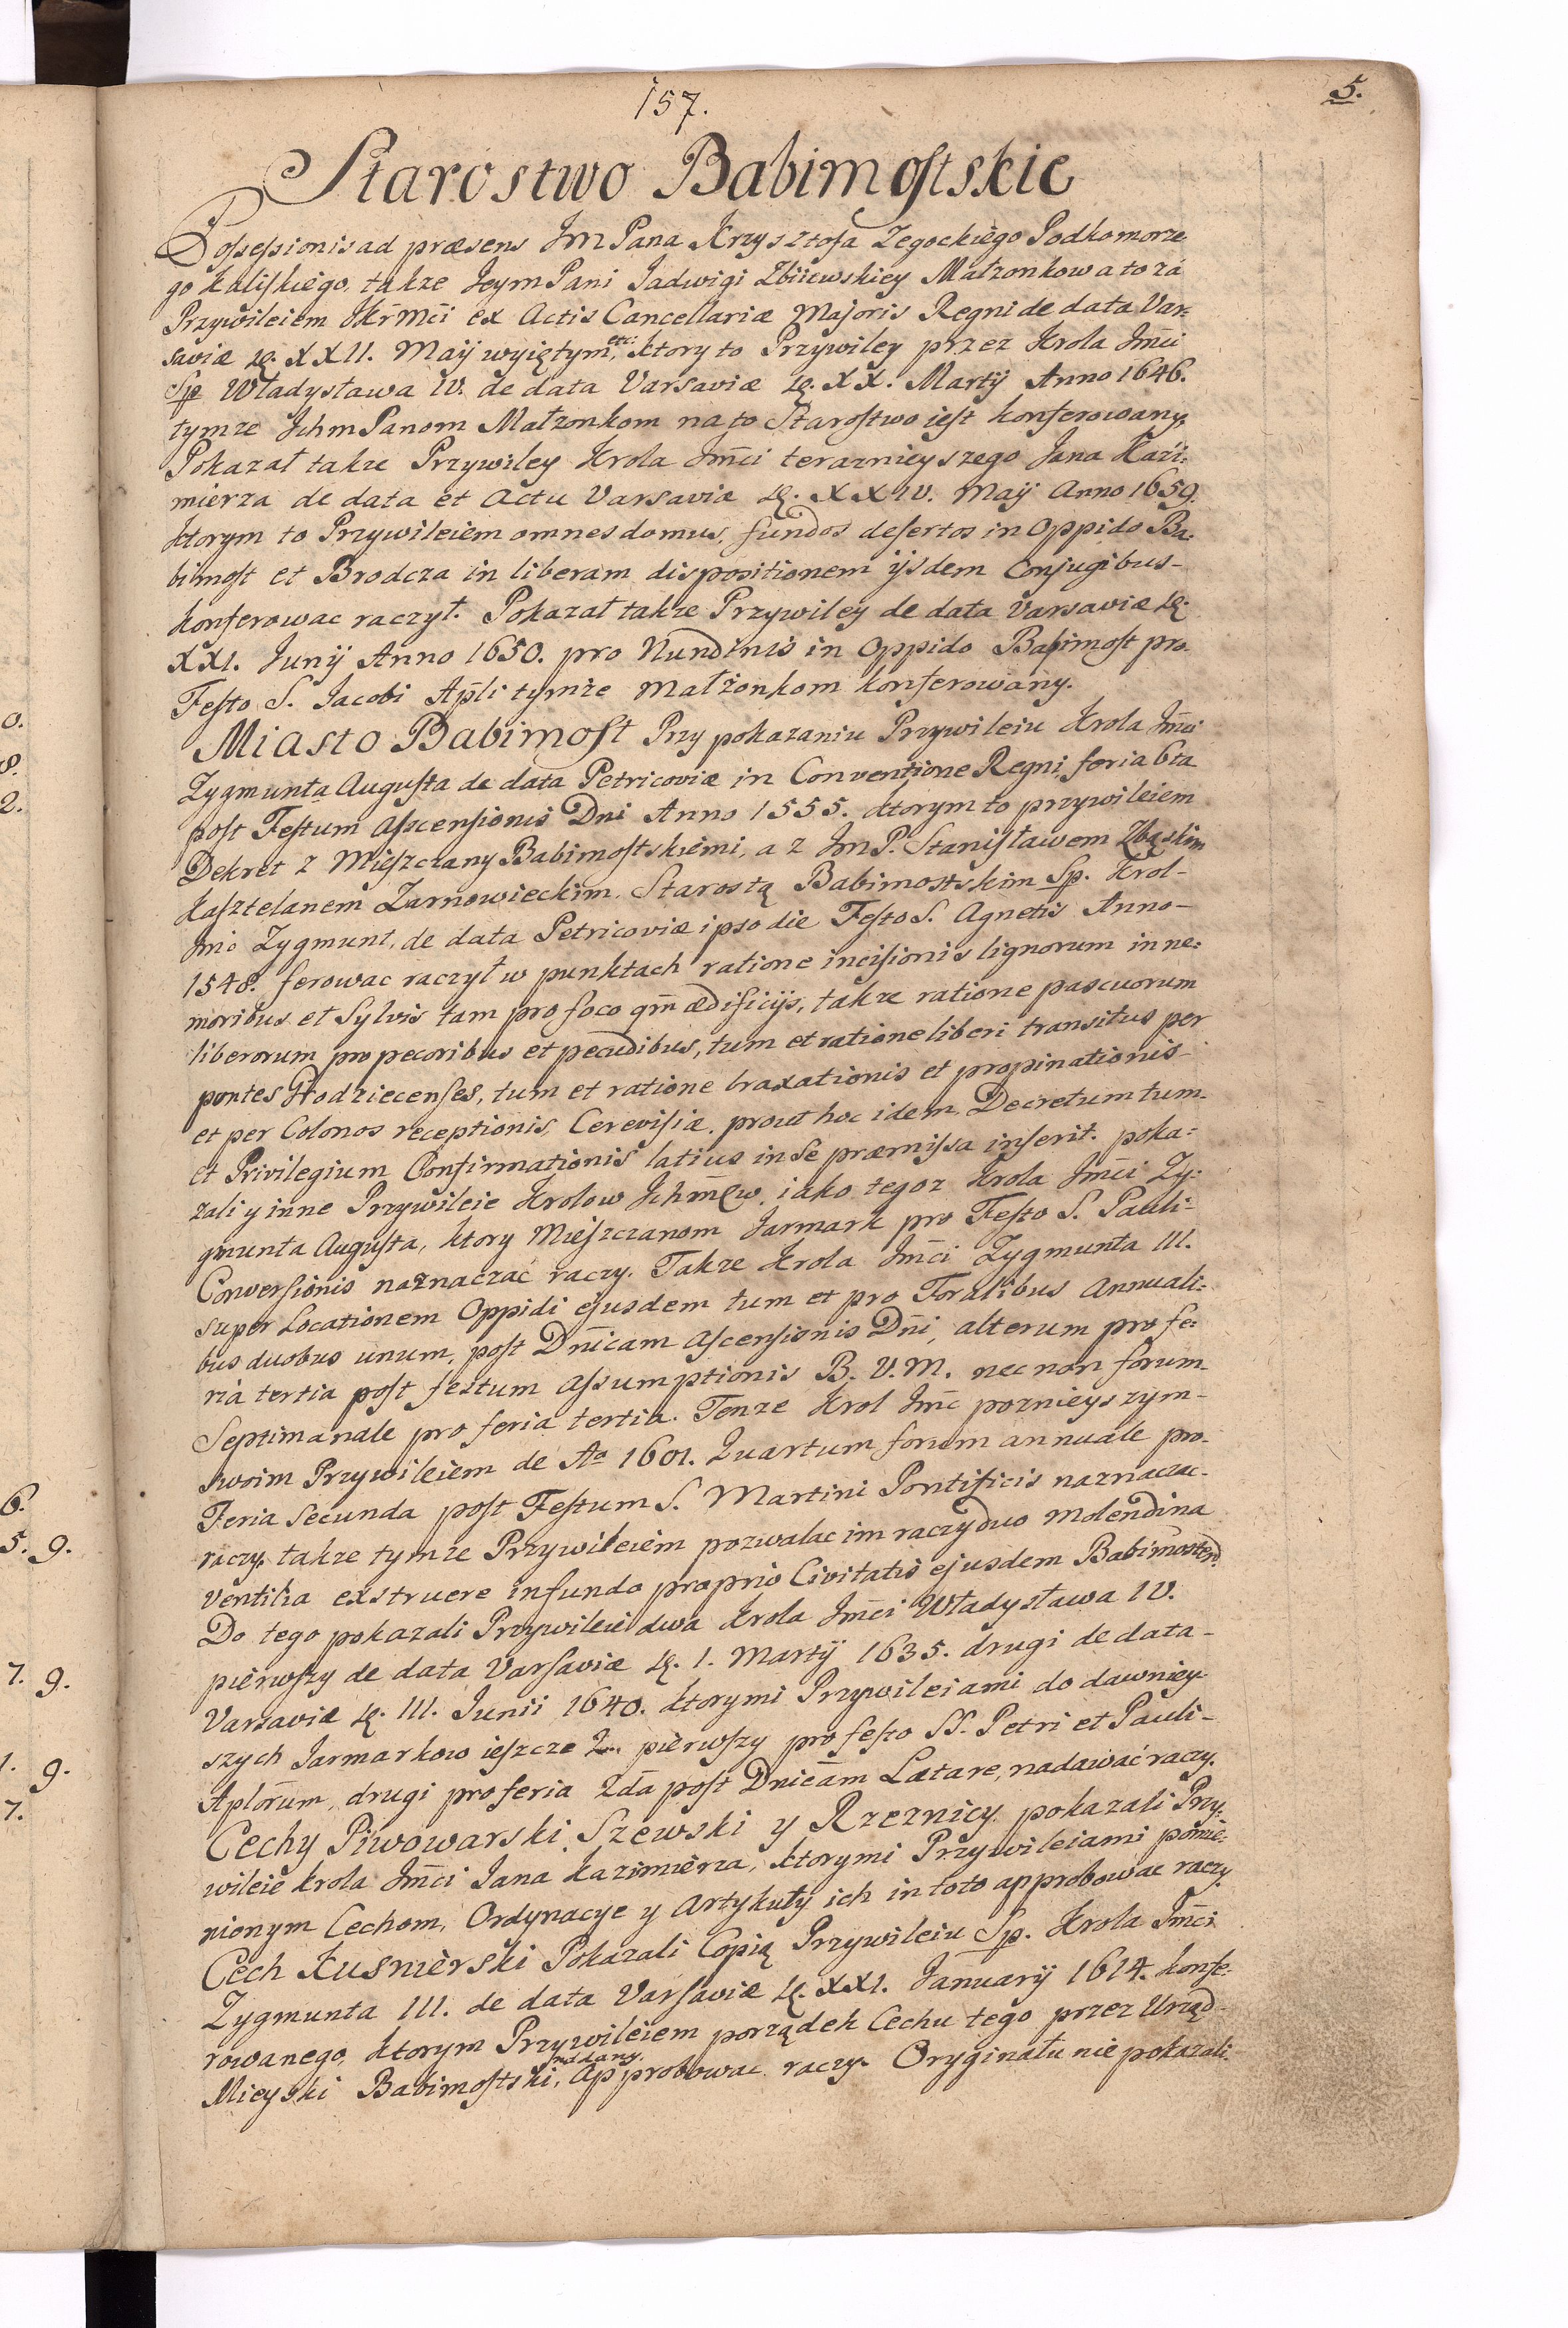 157.
5.
Starostwo Babimostskie
Possessionis ad præsens Jm Pana Krzysztofa Zegockiego Podkomorze
go Kaliskiego, takze Jeym Pani Jadwigi Zbiiewskiey Małzonkow a to za
Przywileiem JKr̃Mći ex Actis Cancellariæ Majoris Regni de data Var:
saviæ XXII. Maij wyiętym, etc: ktory to Przywiley przez Krola Jm̃ci
Sp Władysława IV. de data Varsaviæ XX. Martij Anno 1646.
tymze Jchm Panom Małzonkom na to Starostwo iest konferowany,
Pokazał takze Przywiley Krola Jm̃ci teraznieyszego Jana Kazi:
mierza de data et Actu Varsaviæ XXIV. Maij Anno 1659.
ktorym to Przywileiem omnes domus, fundos desertos in Oppido Ba:
bimost et Brodcza in liberam dispositionem ijsdem Conjugibus-
konferowac raczył. Pokazał takze Przywiley de data Varsaviæ
XXI. Junij Anno 1650. pro Nundinis in Oppido Babimost pro
Festo S. Jacobi Ap̃li tymze Małżonkom konferowany.
Miasto Babimost Przy pokazaniu Przywileiu Krola Jm̃ci
Zygmunta Augusta de data Petricoviæ in Conventione Regni, feria 6ta
post Festum Ascensionis Dni Anno 1555. ktorym to przywileiem
Dekret z Mieszczany Babimostskiemi, a z Jm P. Stanisławem Zbąskim
Kasztelanem Zarnowieckim, Starostą Babimostskim Sp. Krol-
Jmc Zygmunt, de data Petricoviæ ipso die Festo S. Agnetis Anno-
1548. ferowac raczył w punktach ratione incisionis lignorum in ne:
moribus et Sylvis tam pro foco qm̃ ædificijs, takze ratione pascuorum
liberorum pro pecoribus et pecudibus, tum et ratione liberi transitus per
pontes Hodziecenses, tum et ratione braxationis et propinationis-
et per Colonos receptionis, Cerevisiæ, prout hoc idem Decretum tum-
et Privilegium Confirmationis latius in se præmissa inserit. poka:
zali y inne Przywileie Krolow Jchm̃ćw, iako tegoz Krola Jm̃ci Zy:
gmunta Augusta, ktory Mieszczanom Jarmark pro Festo S. Pauli-
Conversionis naznaczać raczy. Takze Krola Jm̃ci Zygmunta III.
super Locationem Oppidi ejusdem tum et pro Foralibus Annuali:
bus duobus unum, post Dñicam Ascensionis Dñi, alterum pro fe:
ria tertia post festum Assumptionis B. V. M. nec non forum
Septimanale pro feria tertia. Tenze Krol Jm̃c poznieyszym-
swoim Przywileiem de Ao 1601. Quartum forum annuale pro-
Feria Secunda post Festum S. Martini Pontificis naznaczac-
raczy takze tymze Przywileiem pozwalac im raczy duo molendina
ventilia exstruere in fundo proprio Civitatis ejusdem Babimosten.
Do tego pokazali Przywileie dwa Krola Jm̃ci Władysława IV.
pierwszy de data Varsaviæ 1. Martij 1635. drugi de data-
Varsaviæ III. Junii 1640. ktorymi Przywileiami do dawniey-
szych Jarmarkow ieszcze 2. pierwszy pro festo SS. Petri et Pauli-
Aplor̃um, drugi pro feria 2da post Dnicam̃ Lætare, nadawać raczy.
Cechy Piwowarski, Szewski y Rzeznicy pokazali Przy:
wileie Krola Jm̃ci Jana Kazimierza, ktorymi Przywileiami pomie:
nionym Cechom, Ordynacye y Artykuły ich in toto approbowac raczy
Cech Kusnierski Pokazali Copią Przywileiu Sp. Krola Jm̃ci
Zygmunta III. de data Varsaviæ XXI. Januarij 1614. konfe:
rowanego, ktorym Przywileiem porządek Cechu tego przez Urząd-
Mieyski Babimostski, nadany. Approbowac raczy. Oryginału nie pokazali.
0.
8.
2.
6.
5. 9.
7. 9.
1. 9.
7.